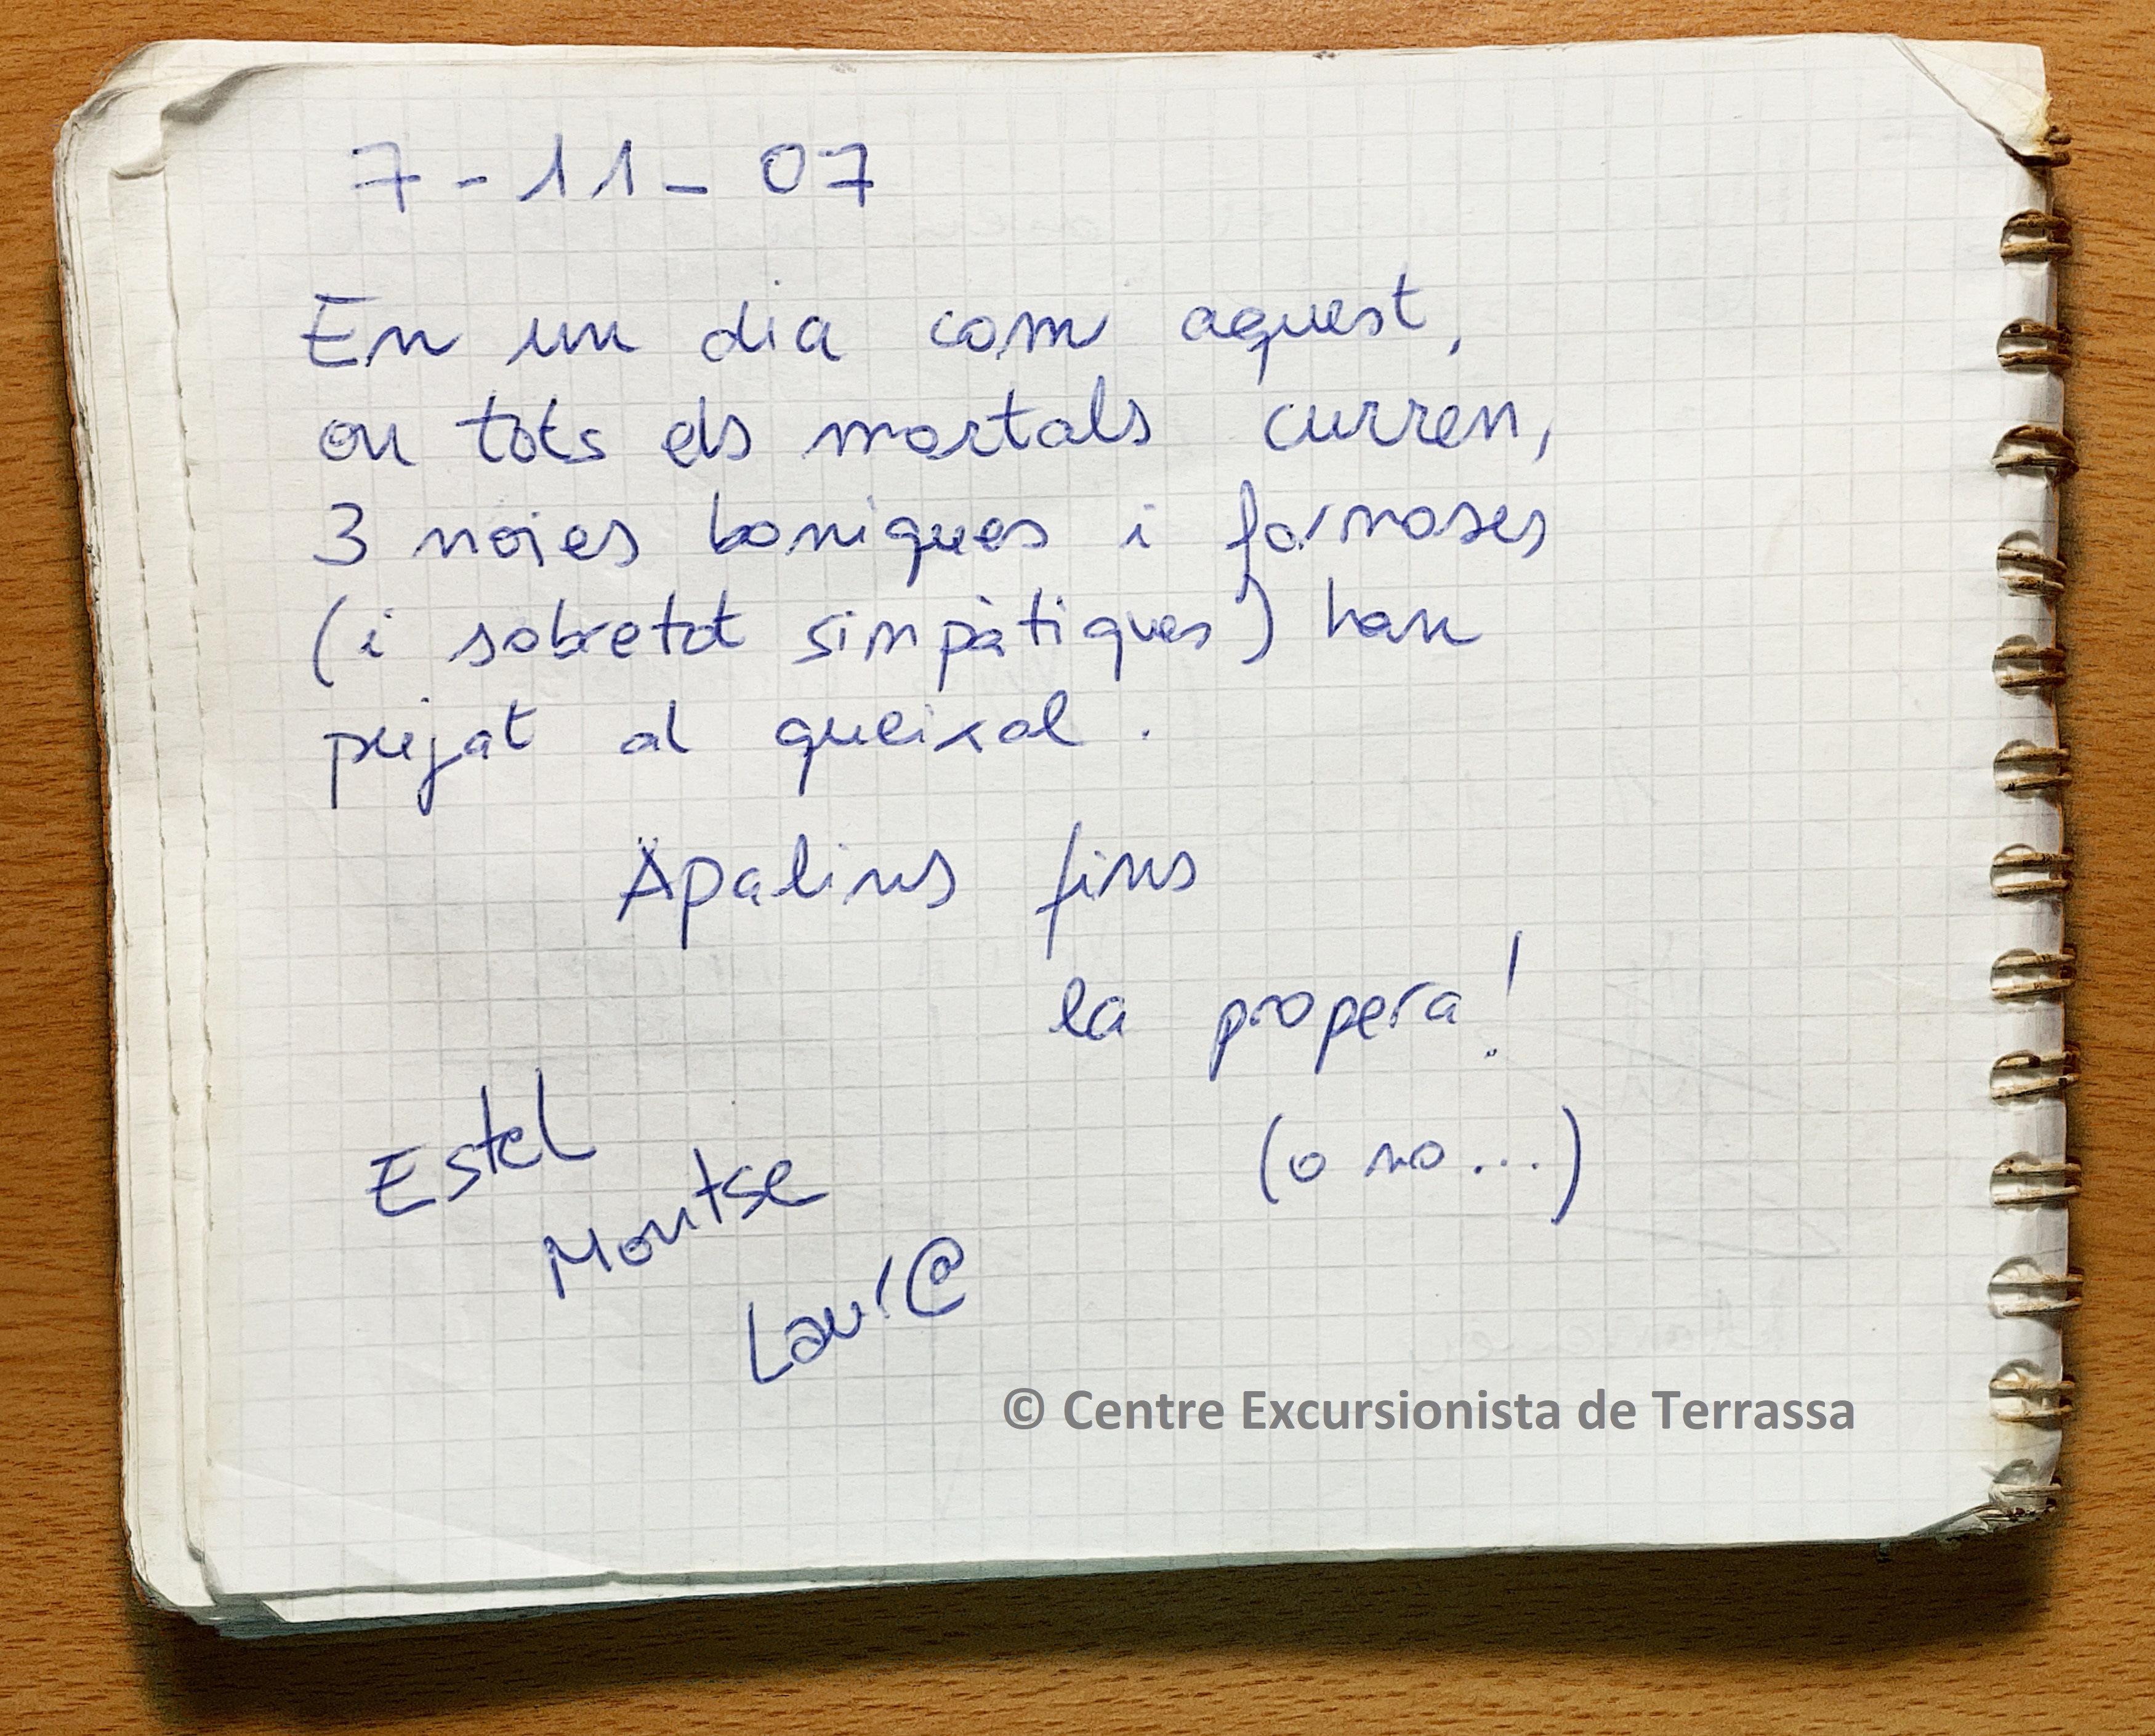 7-11-07
En un dia com aquest,
on tots els mortals curren,
3 noies boniques i formoses
(i sobretot simpàtiques) han
pujat al queixal.
Äpalins fins
la propera!
(o no...)
Estel
Montse
Laur@
© Centre Excursionista de Terrassa